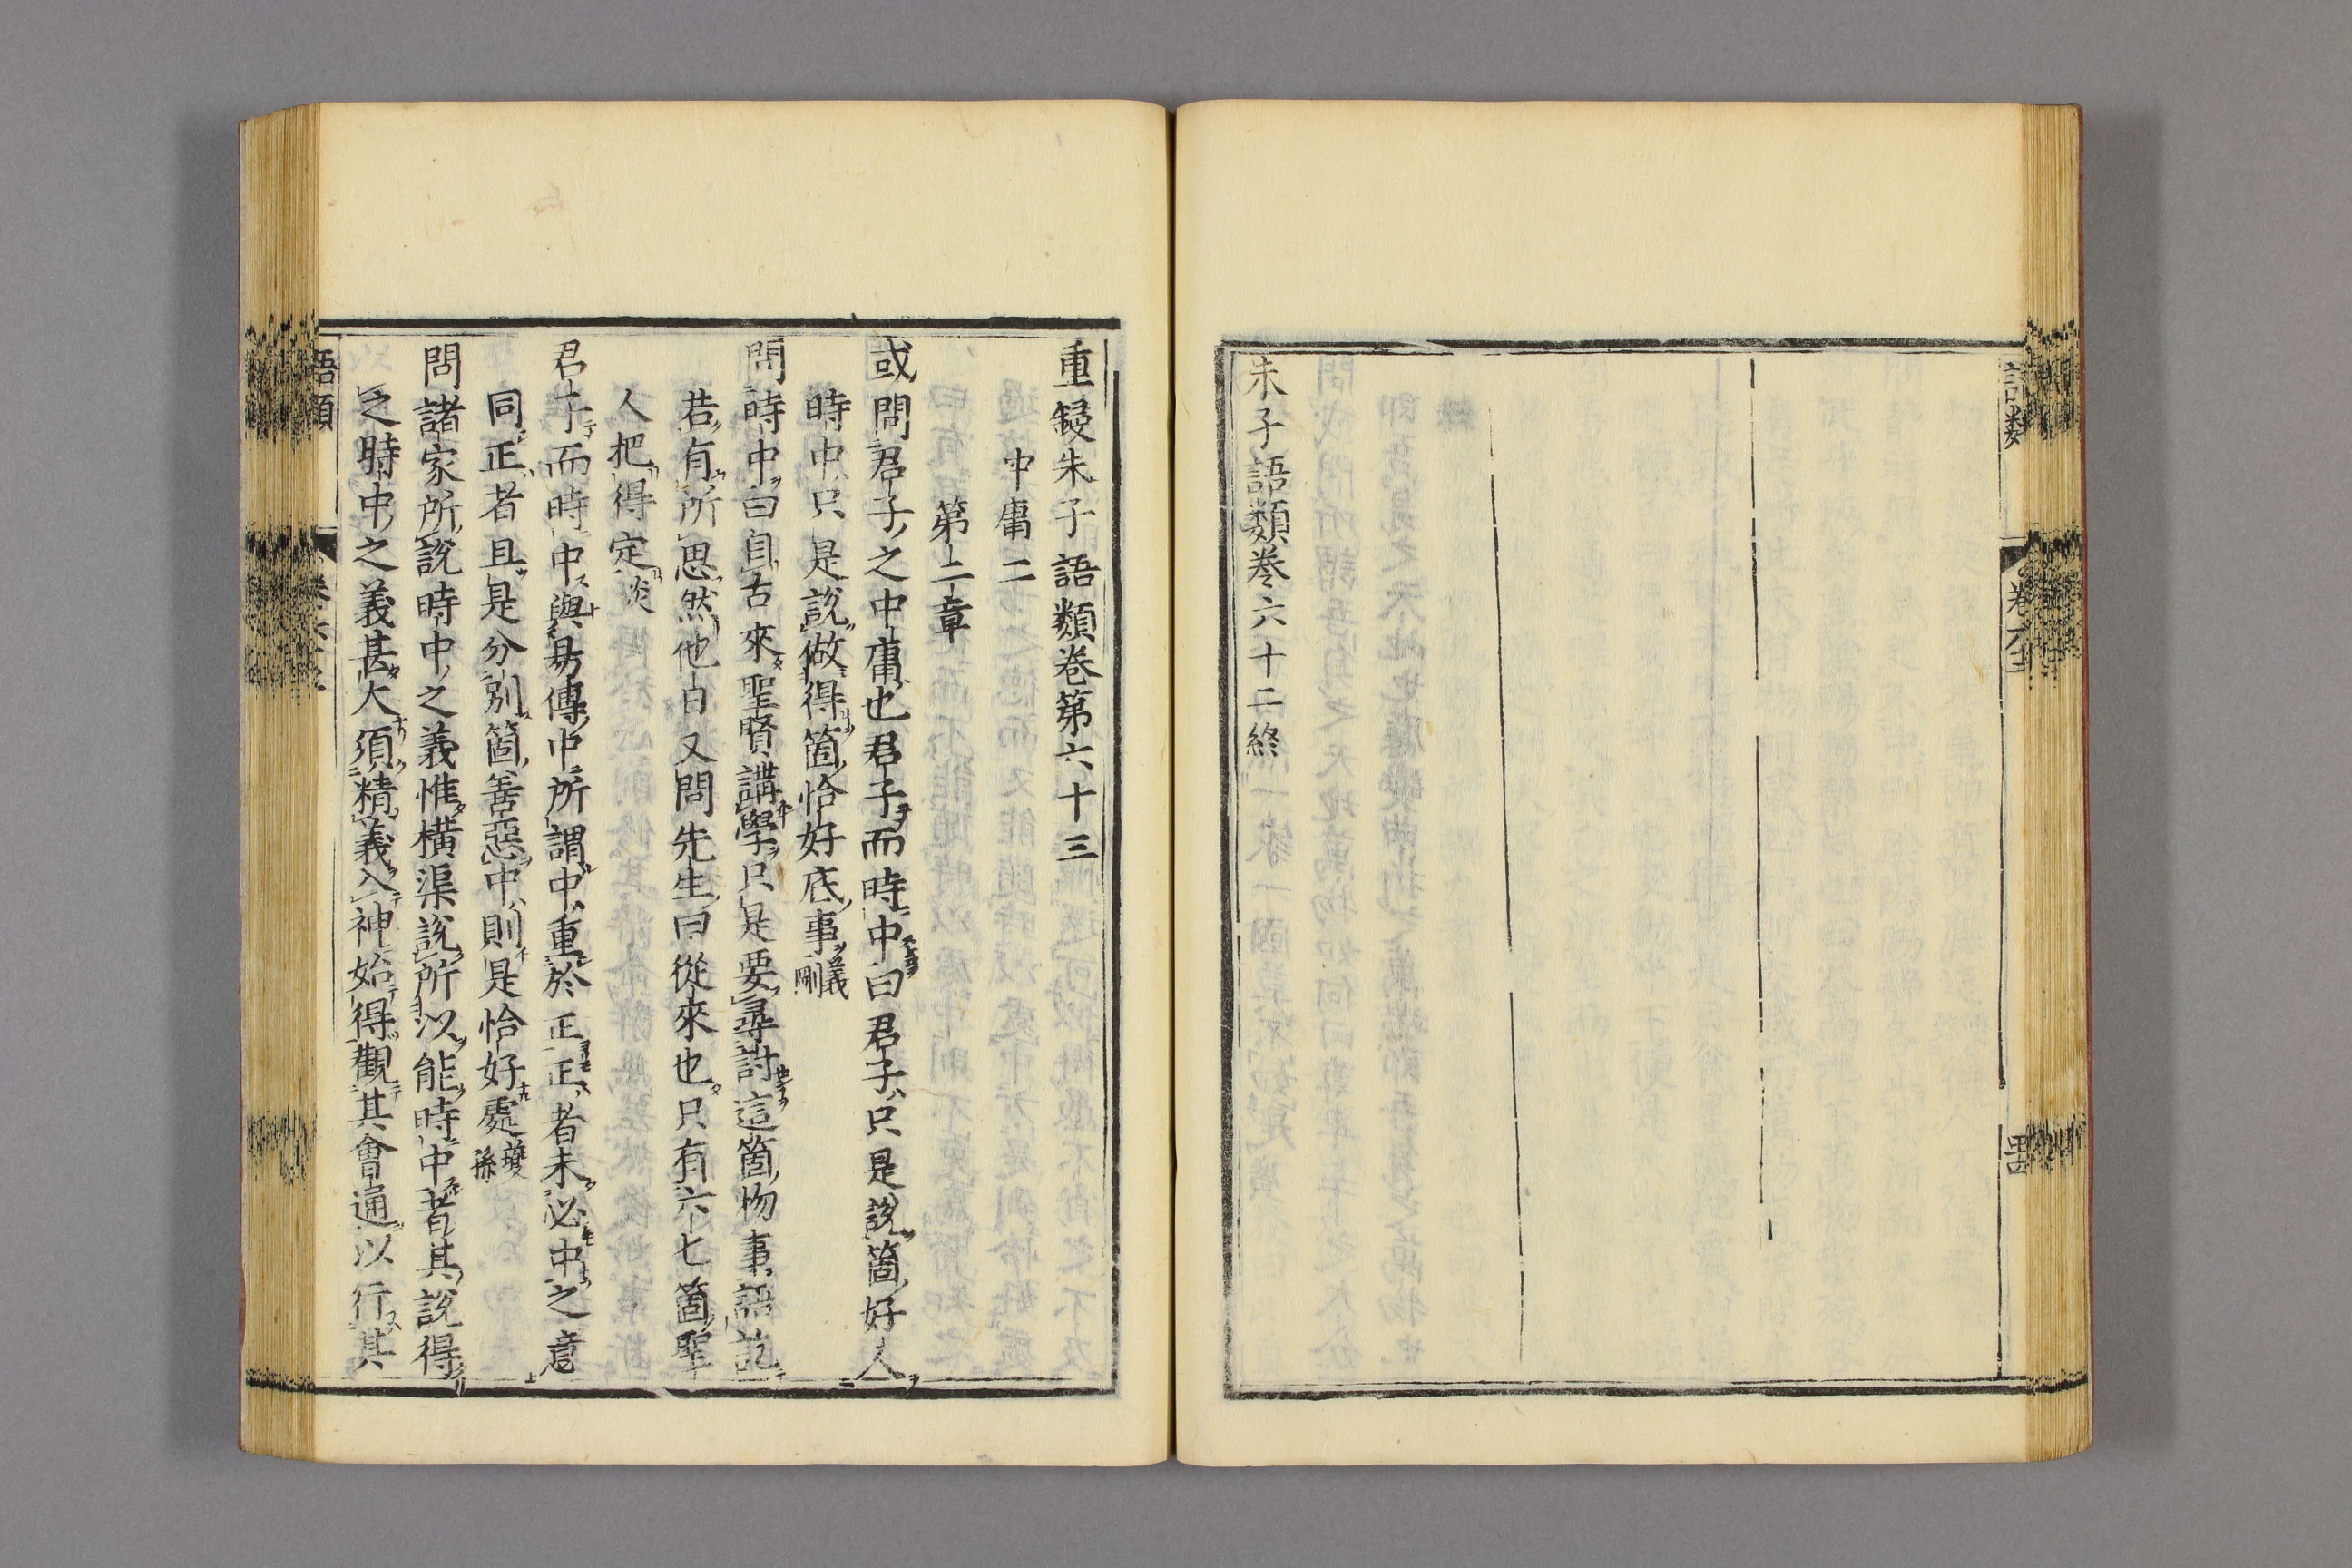 朱子語類卷六十二終
重鋟朱子語類卷第六十三
中庸二
第二章
或問君子之中庸也君子而時中曰君子只是說箇好人
時中只是說做得箇恰好底事義剛
問時中曰自古來聖賢講學只是要尋討這箇物事語訖
若有所思然他日又問先生曰從來也只有六七箇聖
人把得定淡
君子而時中與易傳中所謂中重於正正者未必中之意
同正者且是分別箇善惡中則是恰好處夔孫
問諸家所說時中之義惟橫渠說所以能時中者其說得
之時中之義甚大須精義入神始得觀其會通以行其
語類